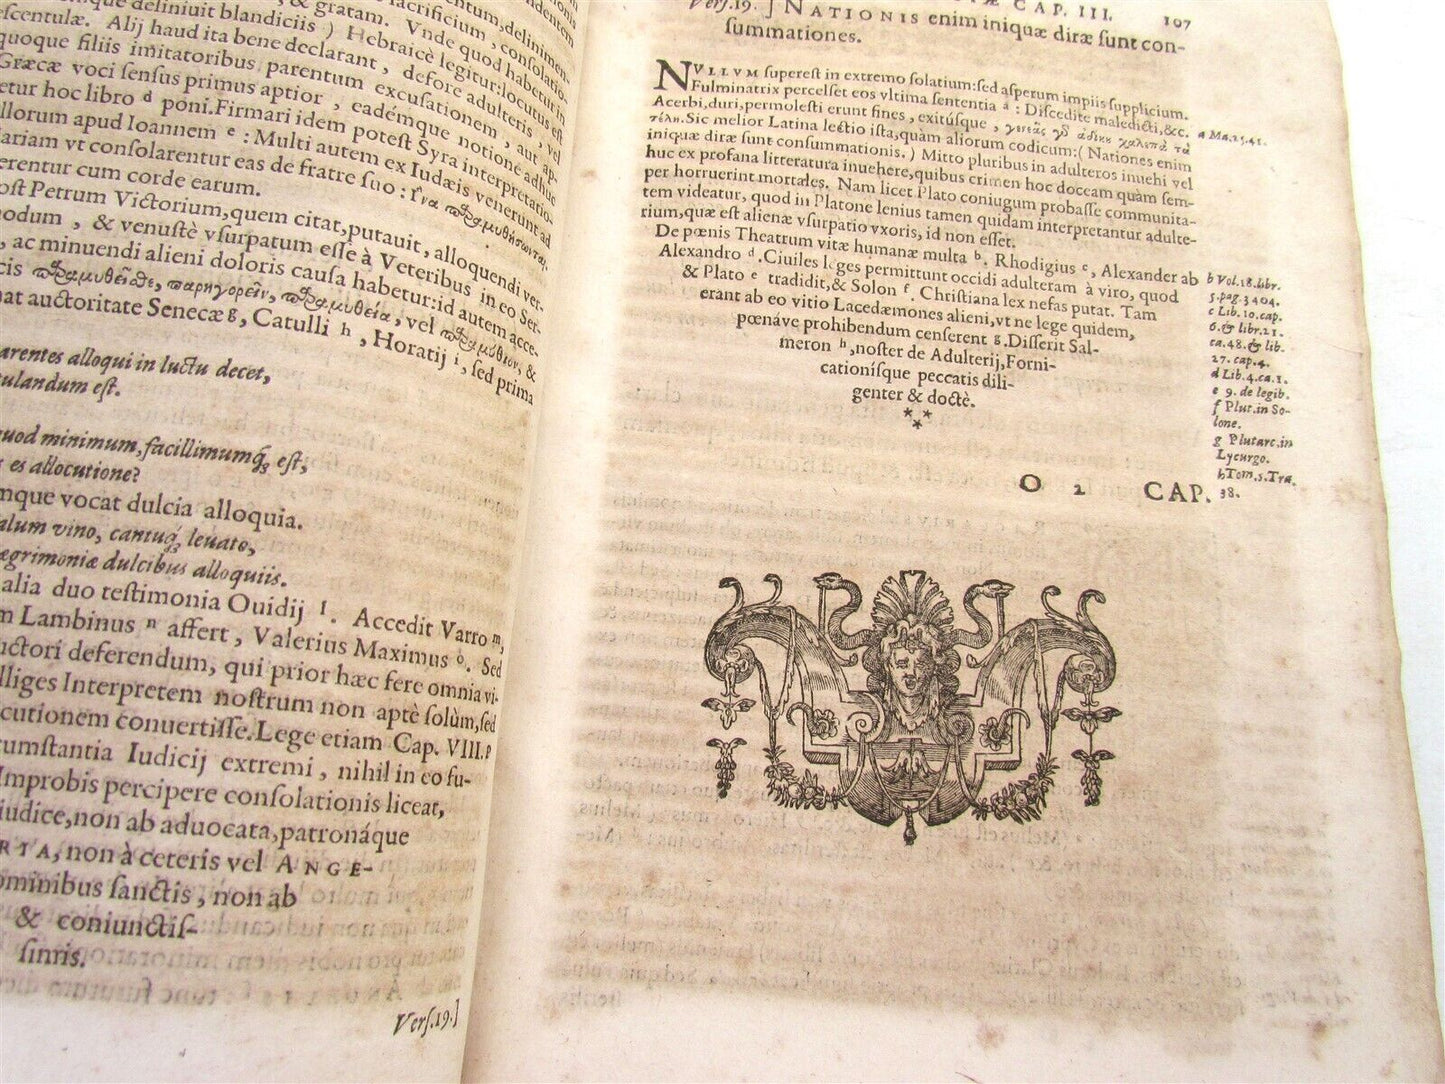 que deliniuit blandiciis
sacrificium, consolatio-
& gratam. Vnde quod habetur in
escentulæ. Alij haud ita bene declarant, defore adulteris, vel
) Hebraicè legitur: locutus est
quoque filiis imitatoribus parentum excusationem, aut ap-
Græcæ voci sensus primus aptior, eadémque notione adhuc
etur hoc libro d poni. Firmari idem potest Syra interpretatio-
llorum apud Ioannem e: Multi autem ex Iudæis venerunt ad
ariam vt consolarentur eas de fratre suo: ἵνα παραμυθήσωνται.
erentur cum corde earum.
ost Petrum Victorium, quem citat, putauit, alloquendi ver-
odum, & venustè vsurpatum esse à Veteribus in eo Ser-
, ac minuendi alieni doloris causa habetur: id autem acce-
cis παραμυθεῖσθε, παρηγορεῖν, παραμυθεία, vel παραμύθιον, &
at auctoritate Senecæ g, Catulli h, Horatij i, sed prima
arentes alloqui in luctu decet,
tulandum est.
quod minimum, facillimumq́ꝫ est,
s es allocutione?
mque vocat dulcia alloquia.
alum vino, cantuq́ꝫ leuato,
ægrimoniæ dulcibus alloquiis.
alia duo testimonia Ouidij l. Accedit Varro m,
m Lambinus n affert, Valerius Maximus o. Sed
uctori deferendum, qui prior hæc fere omnia vi-
lliges Interpretem nostrum non aptè solùm, sed
cutionem conuertisse. Lege etiam Cap. VIII. p
cumstantia Iudicij extremi, nihil in eo fu-
Improbis percipere consolationis liceat,
iudice, non ab aduocata, patronáque
RTA, non à ceteris vel ANGE-
ominibus sanctis, non ab
& coniunctis-
simis.
Vers. 19.]
Æ CAP. III. 107
Vers. 19. ] NATIONIS enim iniquæ diræ sunt con-
summationes.
NVLLVM superest in extremo solatium: sed asperum impiis supplicium.
Fulminatrix percelset eos vltima sententia a: Discedite maledicti, &c.
Acerbi, duri, permolesti erunt fines, exitúsque, γενεᾶς γὸ ἀδίκου χαλεπὰ τὰ
τέλη. Sic melior Latina lectio ista, quàm aliorum codicum: ( Nationes enim
iniquæ diræ sunt consummationis. ) Mitto pluribus in adulteros inuehi vel
huc ex profana litteratura inuehere, quibus crimen hoc doceam quàm sem-
per horruerint mortales. Nam licet Plato coniugum probasse communita-
tem videatur, quod in Platone lenius tamen quidam interpretantur adulte-
rium, quæ est alienæ vsurpatio vxoris, id non esset.
De pœnis Theatrum vitæ humanæ multa b. Rhodigius c, Alexander ab
Alexandro d. Ciuiles leges permittunt occidi adulteram à viro, quod
& Plato e tradidit, & Solon f. Christiana lex nefas putat. Tam
erant ab eo vitio Lacedæmones alieni, vt ne lege quidem,
pœnáve prohibendum censerent g. Disserit Sal-
meron h, noster de Adulterij, Forni-
cationisque peccatis dili-
genter & doctè.
* *
*
a Ma. 25. 41.
b Vol. 18. libr.
5. pag. 3404.
c Lib. 10. cap.
6. & libr. 21.
ca. 48. & lib.
27. cap. 4.
d Lib. 4. ca. 1.
e 9. de legib.
f Plut. in So-
lone.
g Plutarc. in
Lycurgo.
h Tom. 5. Tra.
38.
O 2 CAP.